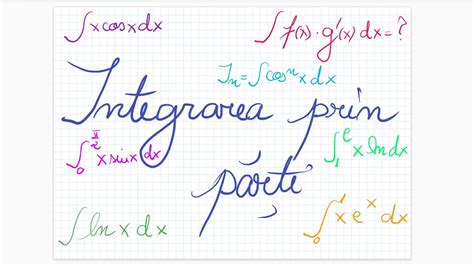 ∫xcosxdx
∫f(x)·g'(x)dx=?
In=∫cosⁿxdx
Integrarea prin
părți
∫₀^(π/2) xsinxdx
∫₁^e xlndx
∫lnxdx
∫₀¹ x eˣ dx